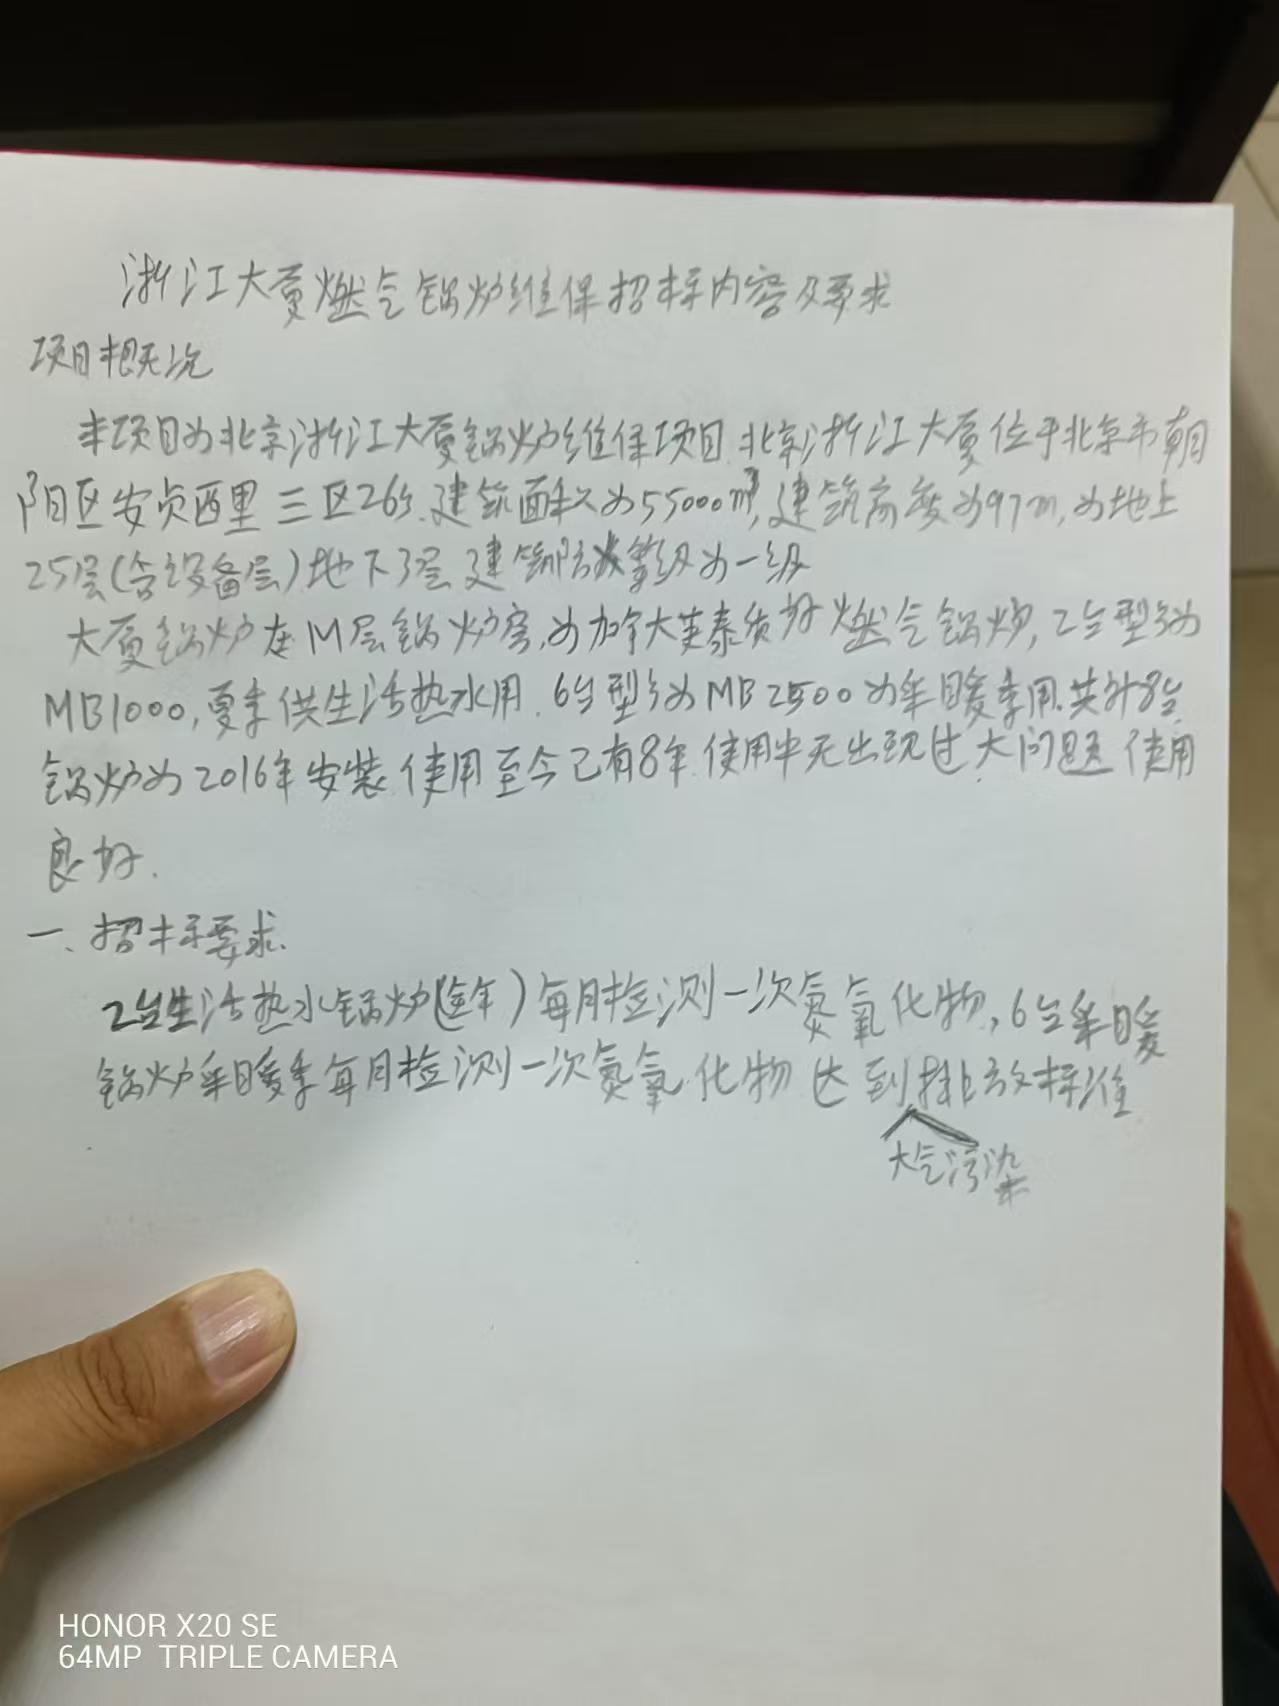 浙江大厦燃气锅炉维保招标内容及要求
项目概况
本项目为北京浙江大厦锅炉维保项目.北京浙江大厦位于北京市朝
阳区安贞西里三区26号.建筑面积为55000m²,建筑高度为97m,为地上
25层(含设备层)地下3层.建筑防火等级为一级
大厦锅炉在M层锅炉房,为加拿大英泰为燃气锅炉,2台型号为
MB1000,夏季供生活热水用.6台型号为MB2500为采暖季用.共计8台.
锅炉为2016年安装.使用至今已有8年.使用中无出现过大问题.使用
良好.
一、招标要求.
2台生活热水锅炉(全年)每月检测一次氮氧化物,6台采暖
锅炉采暖季每月检测一次氮氧化物达到排放标准
大气污染
HONOR X20 SE
64MP TRIPLE CAMERA